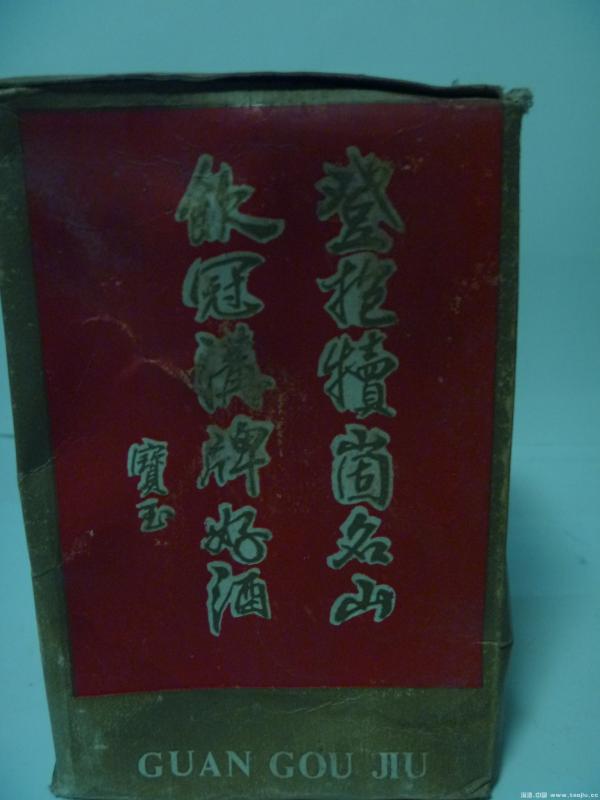 登抱犊崮名山
飲冠溝牌好酒
寶玉
GUAN GOU JIU
淘酒.中国 www.taojiu.cc